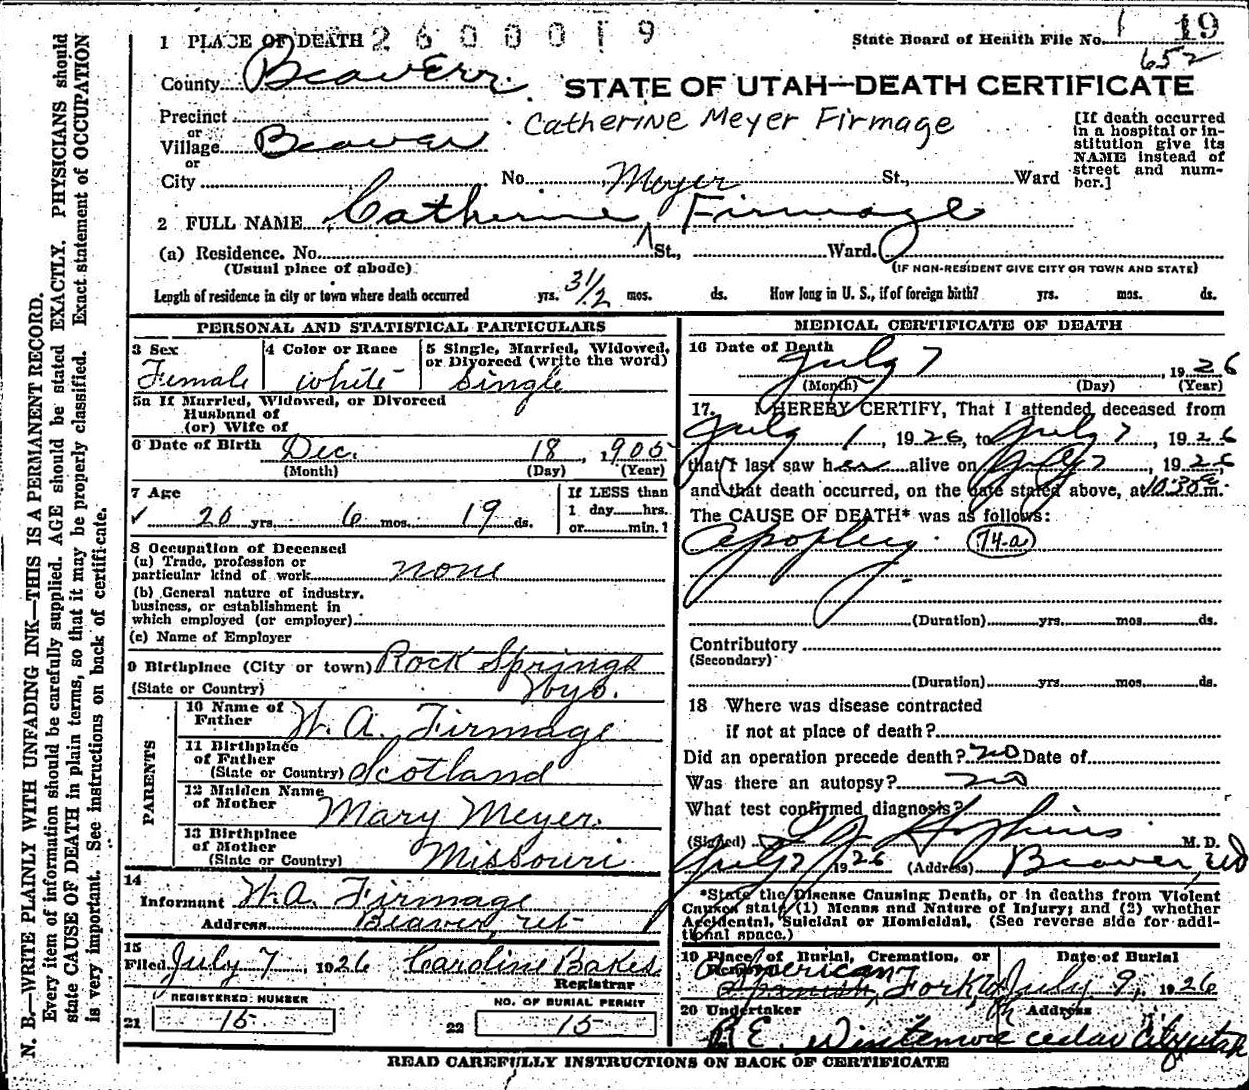 1 PLACE OF DEATH 2600019
State Board of Health File No. 1 19
652
County Beaver
STATE OF UTAH—DEATH CERTIFICATE
Precinct
or
Village Beaver
or
City
Catherine Meyer Firmage
[If death occurred
in a hospital or in-
stitution give its
NAME instead of
street and num-
ber.]
No. St., Ward
Meyer
2 FULL NAME Catherine ^ Firmage
(a) Residence. No. St., Ward.
(Usual place of abode) (IF NON-RESIDENT GIVE CITY OR TOWN AND STATE)
Length of residence in city or town where death occurred yrs. 3 1/2 mos. ds. How long in U. S., if of foreign birth? yrs. mos. ds.
PERSONAL AND STATISTICAL PARTICULARS
3 Sex Female
4 Color or Race white
5 Single, Married, Widowed,
or Divorced (write the word)
Single
5a If Married, Widowed, or Divorced
Husband of
(or) Wife of
6 Date of Birth Dec. 18, 1905
(Month) (Day) (Year)
7 Age
✓ 20 yrs. 6 mos. 19 ds.
If LESS than
1 day hrs.
or min.?
8 Occupation of Deceased
(a) Trade, profession or
particular kind of work none
(b) General nature of industry,
business, or establishment in
which employed (or employer)
(c) Name of Employer
9 Birthplace (City or town) Rock Springs
(State or Country) Wyo.
PARENTS
10 Name of
Father W. A. Firmage
11 Birthplace
of Father
(State or Country) Scotland
12 Maiden Name
of Mother Mary Meyer.
13 Birthplace
of Mother
(State or Country) Missouri
14
Informant W. A. Firmage
Address Beaver, Ut
15
Filed July 7, 1926 Caroline Bakes
Registrar
REGISTERED NUMBER
21 15
NO. OF BURIAL PERMIT
22 15
MEDICAL CERTIFICATE OF DEATH
16 Date of Death
July 7, 1926
(Month) (Day) (Year)
17. I HEREBY CERTIFY, That I attended deceased from
July 1, 1926, to July 7, 1926
that I last saw her alive on July 7, 1926
and that death occurred, on the date stated above, at 10:30 m.
The CAUSE OF DEATH* was as follows:
Apoplexy. 74-a
(Duration) yrs. mos. ds.
Contributory
(Secondary)
(Duration) yrs. mos. ds.
18 Where was disease contracted
if not at place of death?
Did an operation precede death? no Date of
Was there an autopsy? no
What test confirmed diagnosis?
(Signed) Hopkins M. D.
July 7, 1926 (Address) Beaver, Ut
*State the Disease Causing Death, or in deaths from Violent
Causes state (1) Means and Nature of Injury; and (2) whether
Accidental, Suicidal or Homicidal. (See reverse side for addi-
tional space.)
19 Place of Burial, Cremation, or
Removal
Date of Burial
American
Spanish, Fork, Ut July 9, 1926
20 Undertaker Address
Cedar City Utah
READ CAREFULLY INSTRUCTIONS ON BACK OF CERTIFICATE
N. B.—WRITE PLAINLY WITH UNFADING INK—THIS IS A PERMANENT RECORD.
Every item of information should be carefully supplied. AGE should be stated EXACTLY. PHYSICIANS should
state CAUSE OF DEATH in plain terms, so that it may be properly classified. Exact statement of OCCUPATION
is very important. See instructions on back of certificate.